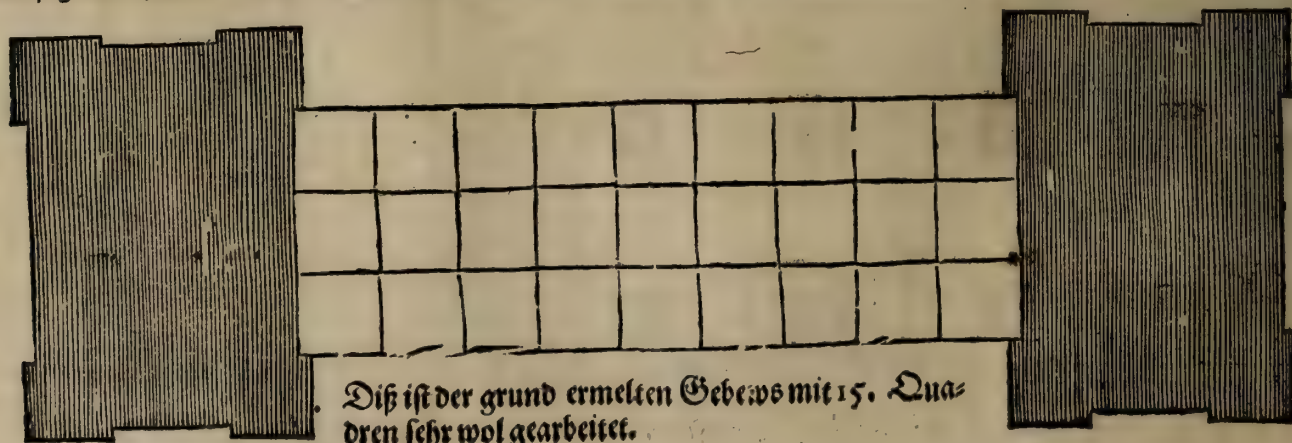 Diß ist der grund ermelten Gebews mit 15. Qua⸗
dren sehr wol gearbeitet.